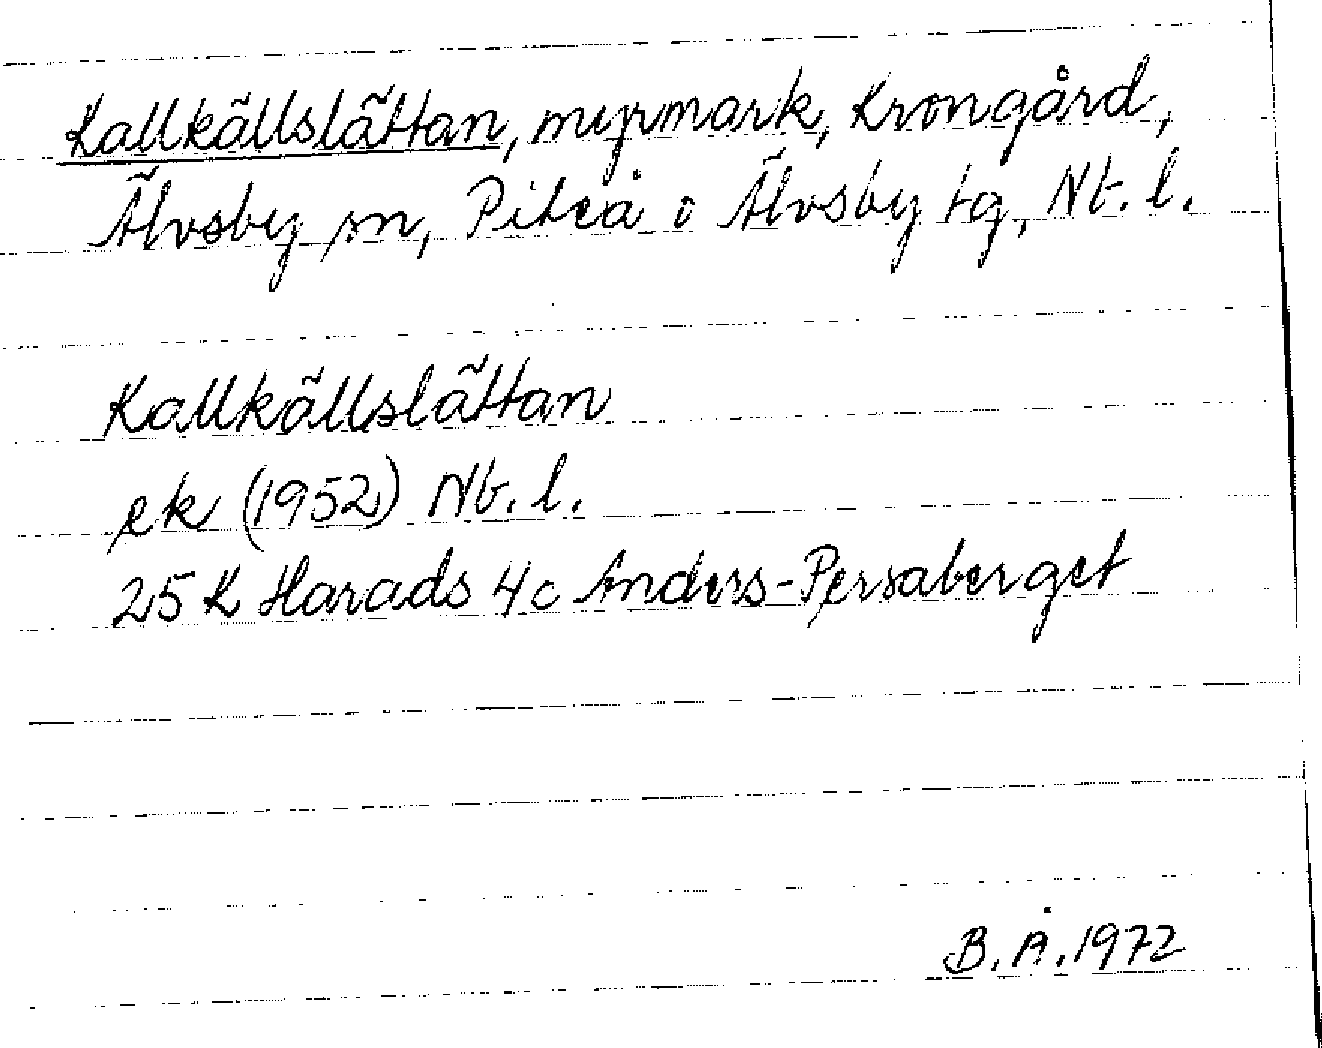 Kallkällslättan, myrmark, Krongård,
Älvsby sn, Piteå o Älvsby tg, Nb. l.
Kallkällslättan
ek (1952) Nb. l.
25 K Harads 4c Anders-Persaberget
B. Å. 1972